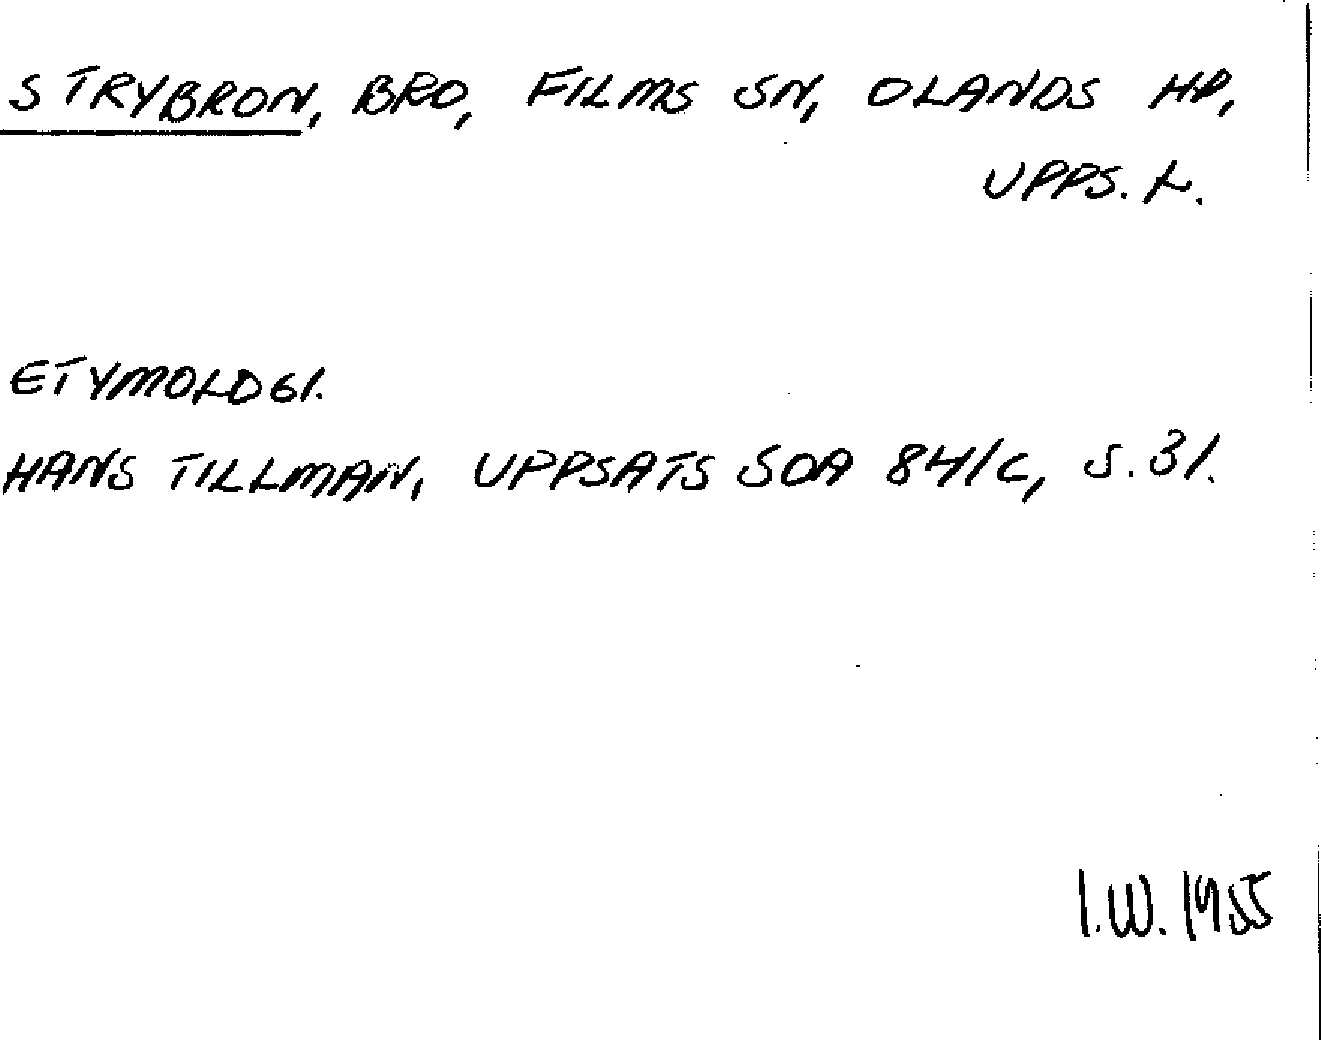 STRYBRON, BRO, FILMS SN, OLANDS HD,
UPPS. L.
ETYMOLOGI.
HANS TILLMAN, UPPSATS SOA 841C, S. 31.
I.W. 1955